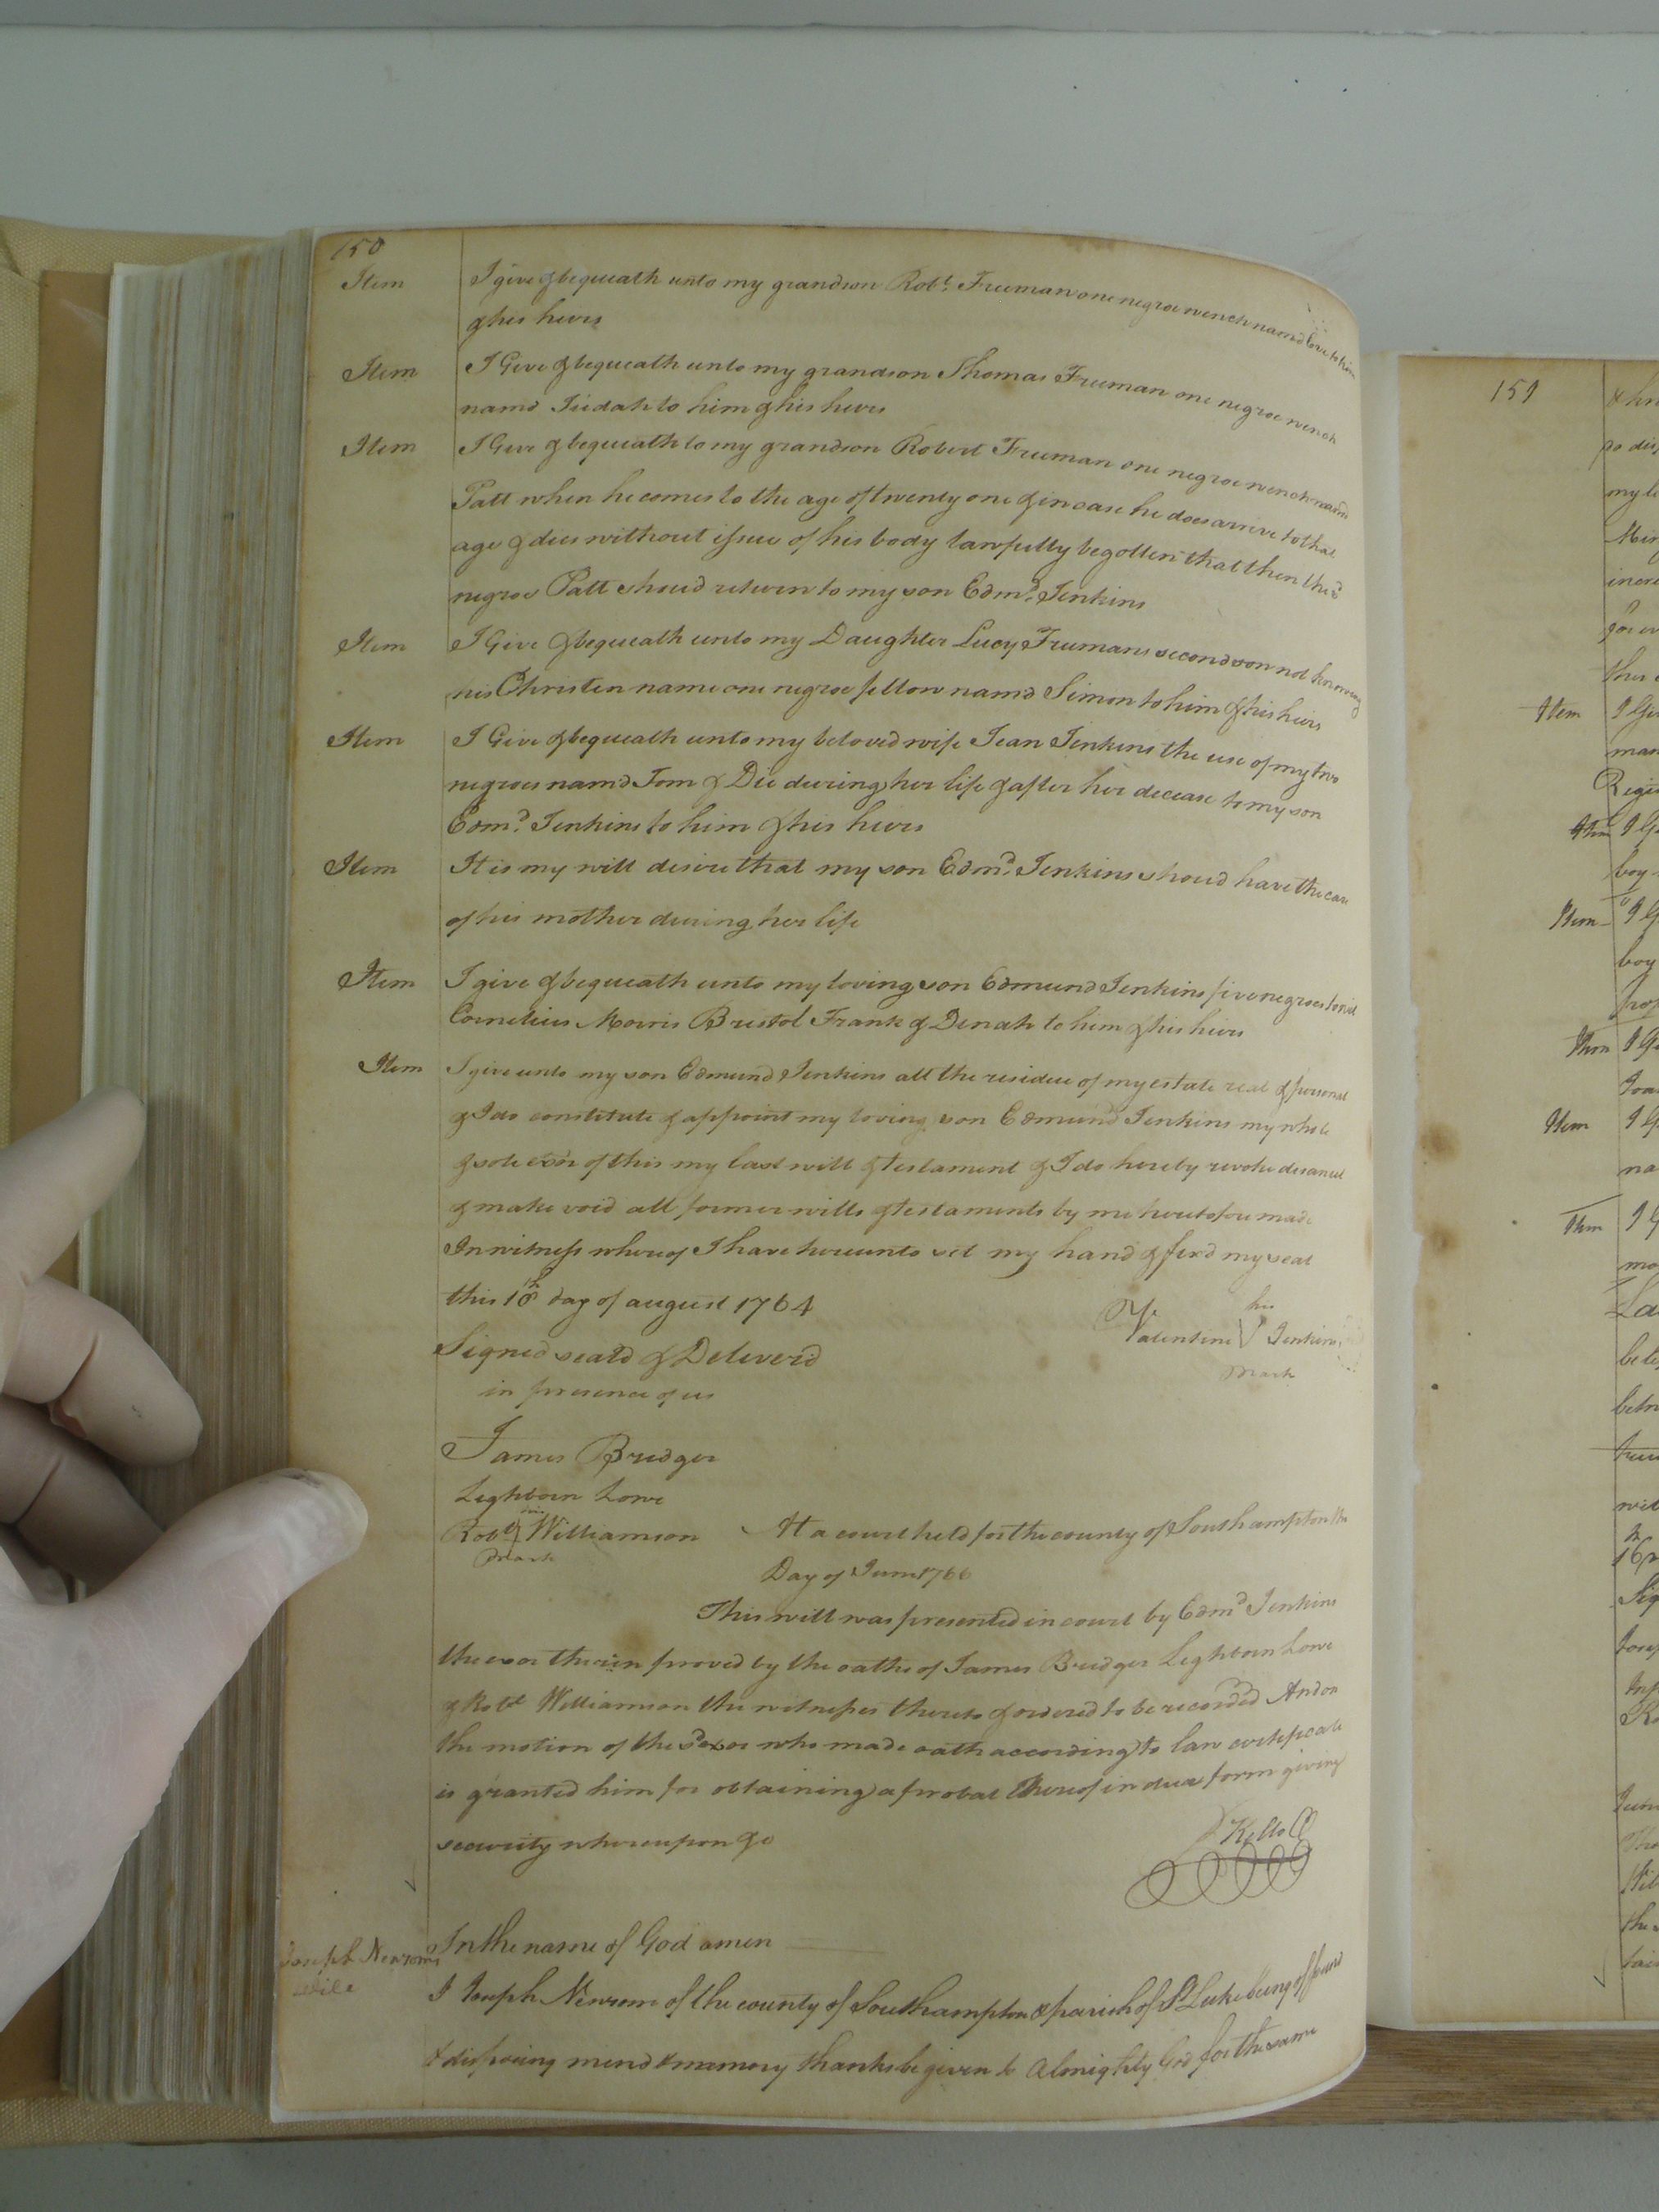 150
Item I give & bequeath unto my grandson Robt. Freeman one negroe wench namd Love to him
& his heirs
Item I Give & bequeath unto my grandson Thomas Freeman one negroe wench
namd Judah to him & his heirs
Item I Give & bequeath to my grandson Robert Freeman one negroe wench namd
Patt when he comes to the age of twenty one & in case he does arrive to that
age & dies without issue of his body lawfully begotten that then the sd
negroe Patt shoud return to my son Edmd. Jenkins
Item I Give & bequeath unto my Daughter Lucy Freemans second son not knowing
his Christen name one negroe fellow namd Simon to him & his heirs
Item I Give & bequeath unto my beloved wife Jean Jenkins the use of my two
negroes namd Tom & Die during her life & after her decease to my son
Edmd. Jenkins to him & his heirs
Item It is my will desire that my son Edmd. Jenkins shoud have the care
of his mother during her life
Item I give & bequeath unto my loving son Edmund Jenkins five negroes to wit
Cornelius Morris Bristol Frank & Dinah to him & his heirs
Item I give unto my son Edmund Jenkins all the residue of my estate real & personal
& I do constitute & appoint my loving son Edmund Jenkins my whole
& sole exor of this my last will & testament & I do hereby revoke disanul
& make void all former wills & testaments by me heretofore made
In witness whereof I have hereunto set my hand & fixd my seal
this 18th day of august 1764
Valentine his V mark Jenkins
Signed seald & Deliverd
in presence of us
James Bridger
Lighborn Lowe
Robt his mark Williamson At a court held for the county of Southampton the
Day of June 1766
This will was presented in court by Edmd Jenkins
the exor therein proved by the oaths of James Bridger Lighborn Lowe
& Robt Williamson the witnesses thereto & ordered to be recorded And on
the motion of the sd exor who made oath according to law certificate
is granted him for obtaining a probat thereof in due form giving
security whereupon &c
Kello
Joseph Newsoms will
In the name of God amen
I Joseph Newsom of the county of Southampton & parish of St Luke being of sound
& disposing mind & memory thanks be given to Almighty God for the same
151
so dis
my
for
Item I
man
Item I
boy
Item I
boy
Item I
Item I
na
Item I